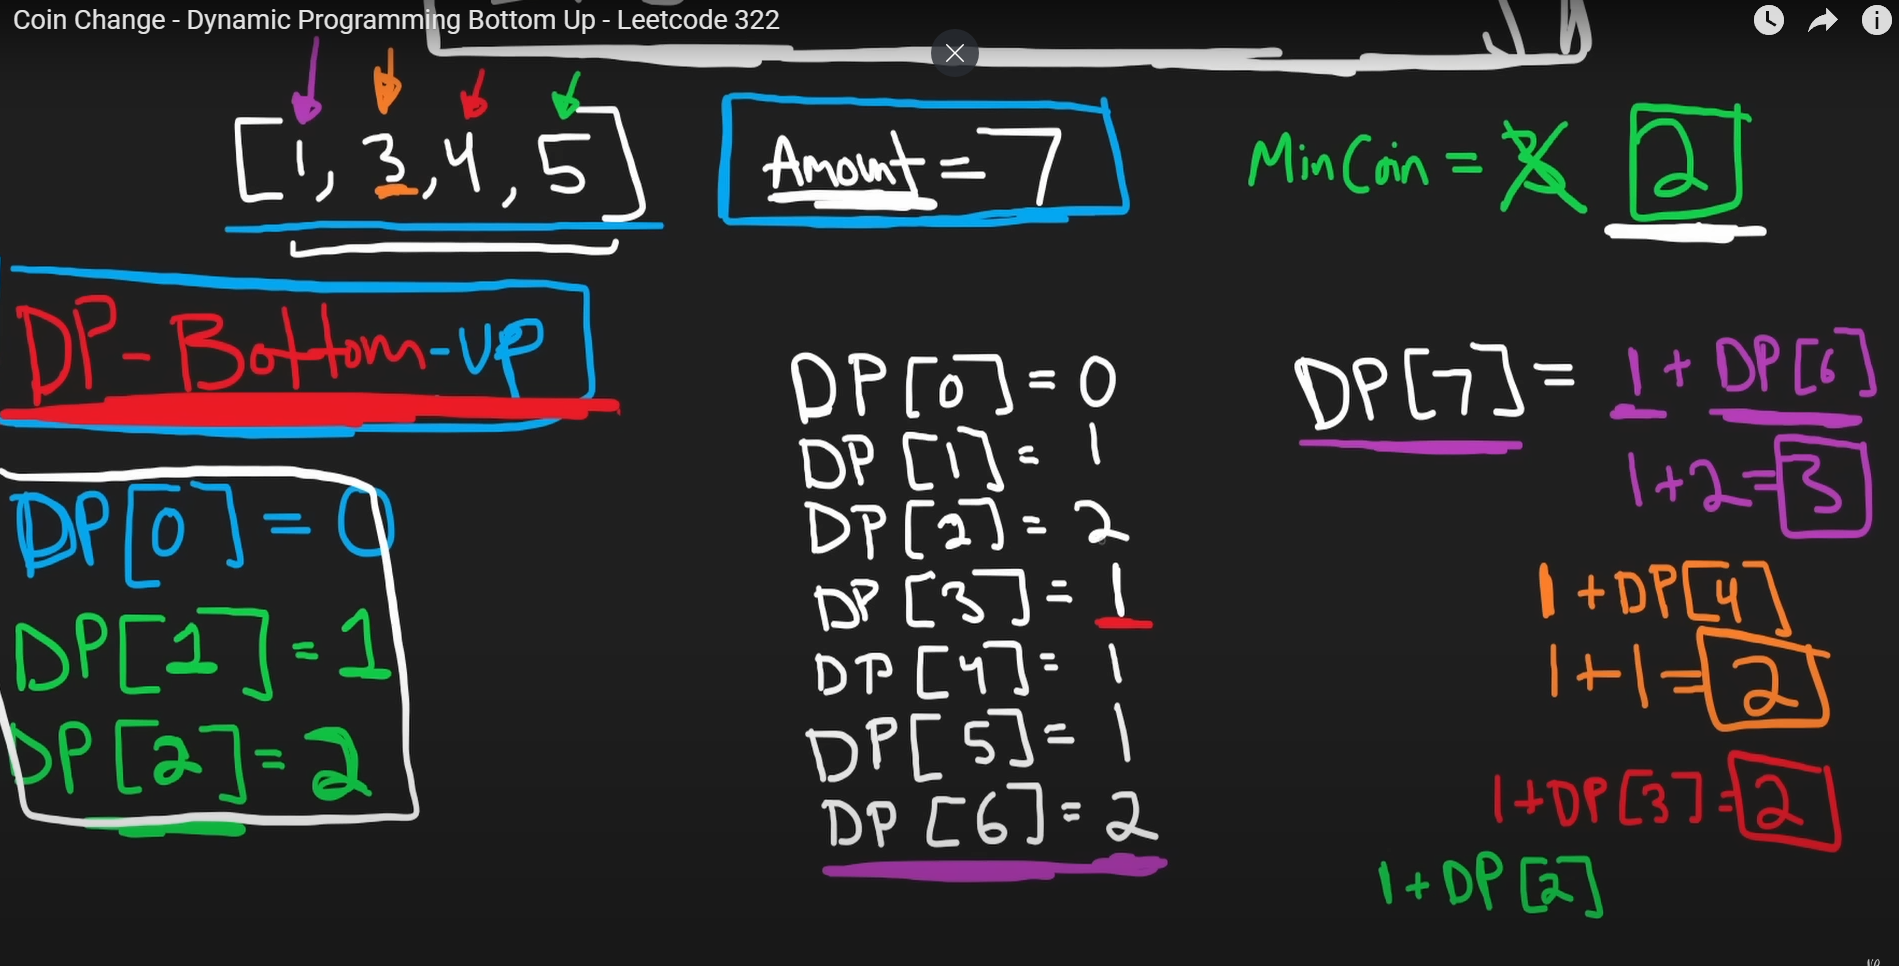 Coin Change - Dynamic Programming Bottom Up - Leetcode 322
[1, 3, 4, 5]
Amount = 7
MinCoin = 2
DP-Bottom-UP
DP[0] = 0
DP[1] = 1
DP[2] = 2
DP[0] = 0
DP[1] = 1
DP[2] = 2
DP[3] = 1
DP[4] = 1
DP[5] = 1
DP[6] = 2
DP[7] = 1 + DP[6]
1+2=3
1+DP[4]
1+1=2
1+DP[3]=2
1+DP[2]